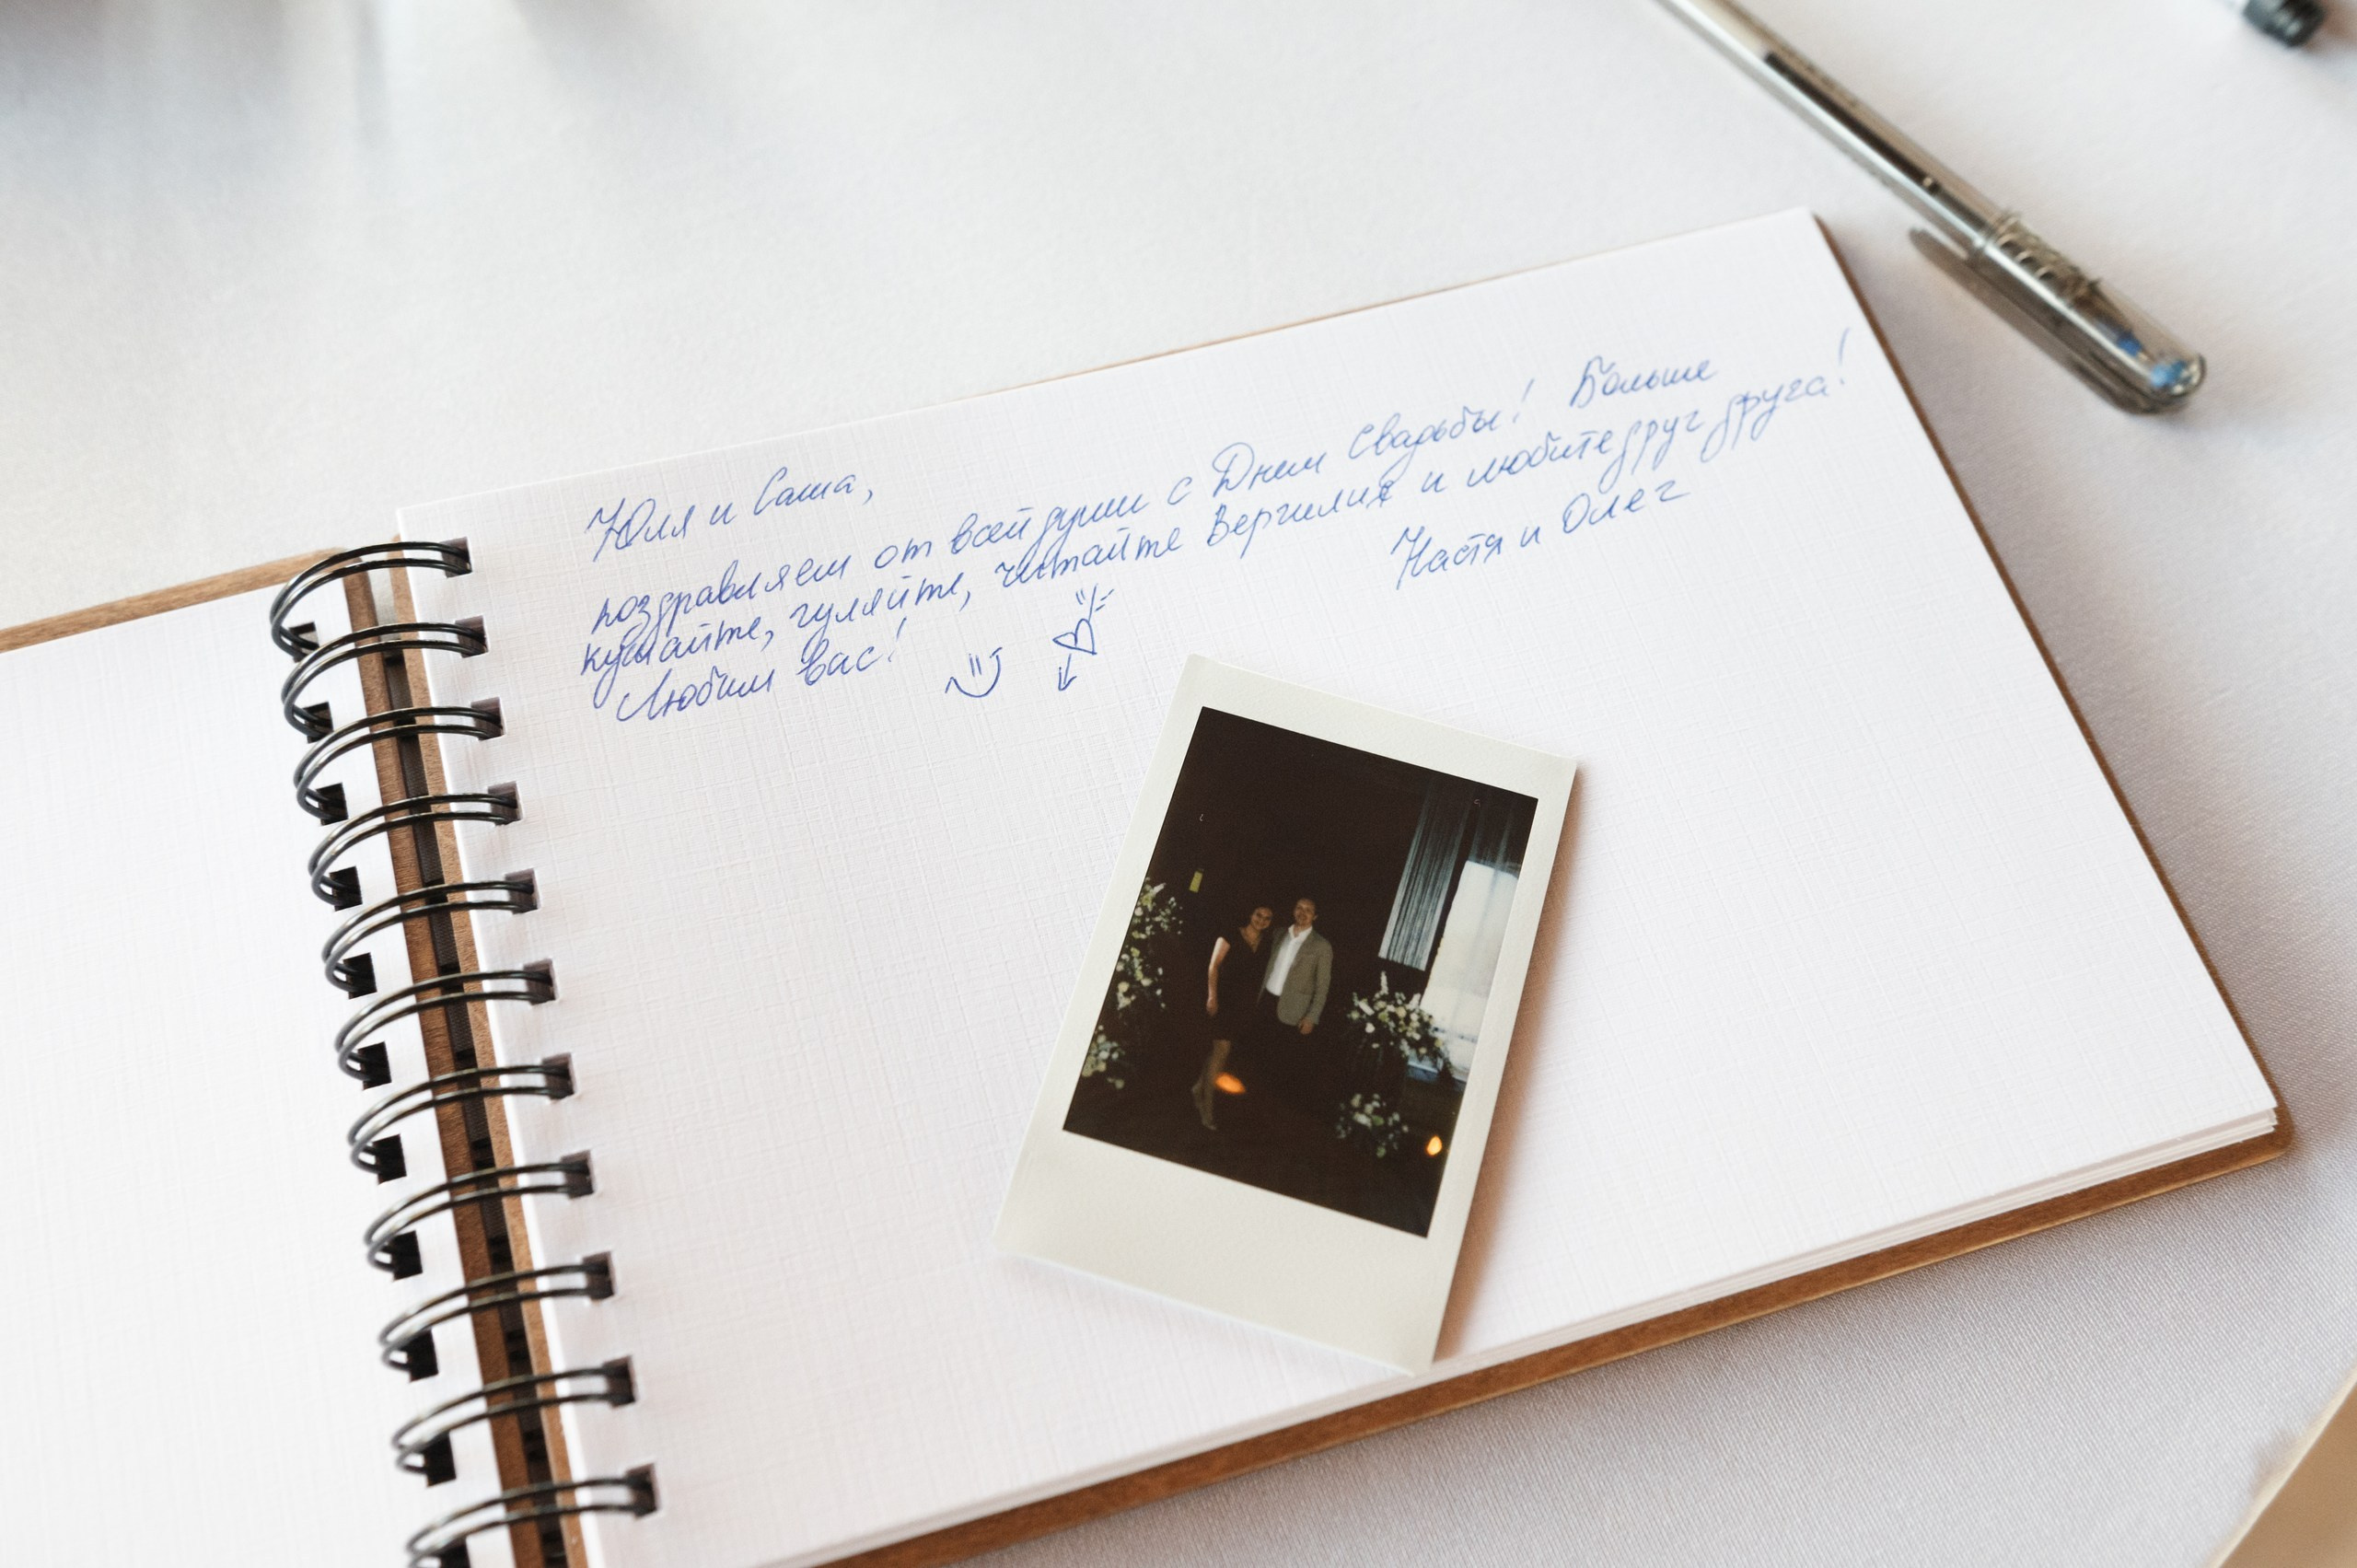 Юля и Саша,
поздравляем от всей души с Днем Свадьбы! Больше
кушайте, гуляйте, читайте Вергилия и любите друг друга!
Любим вас!
Настя и Олег